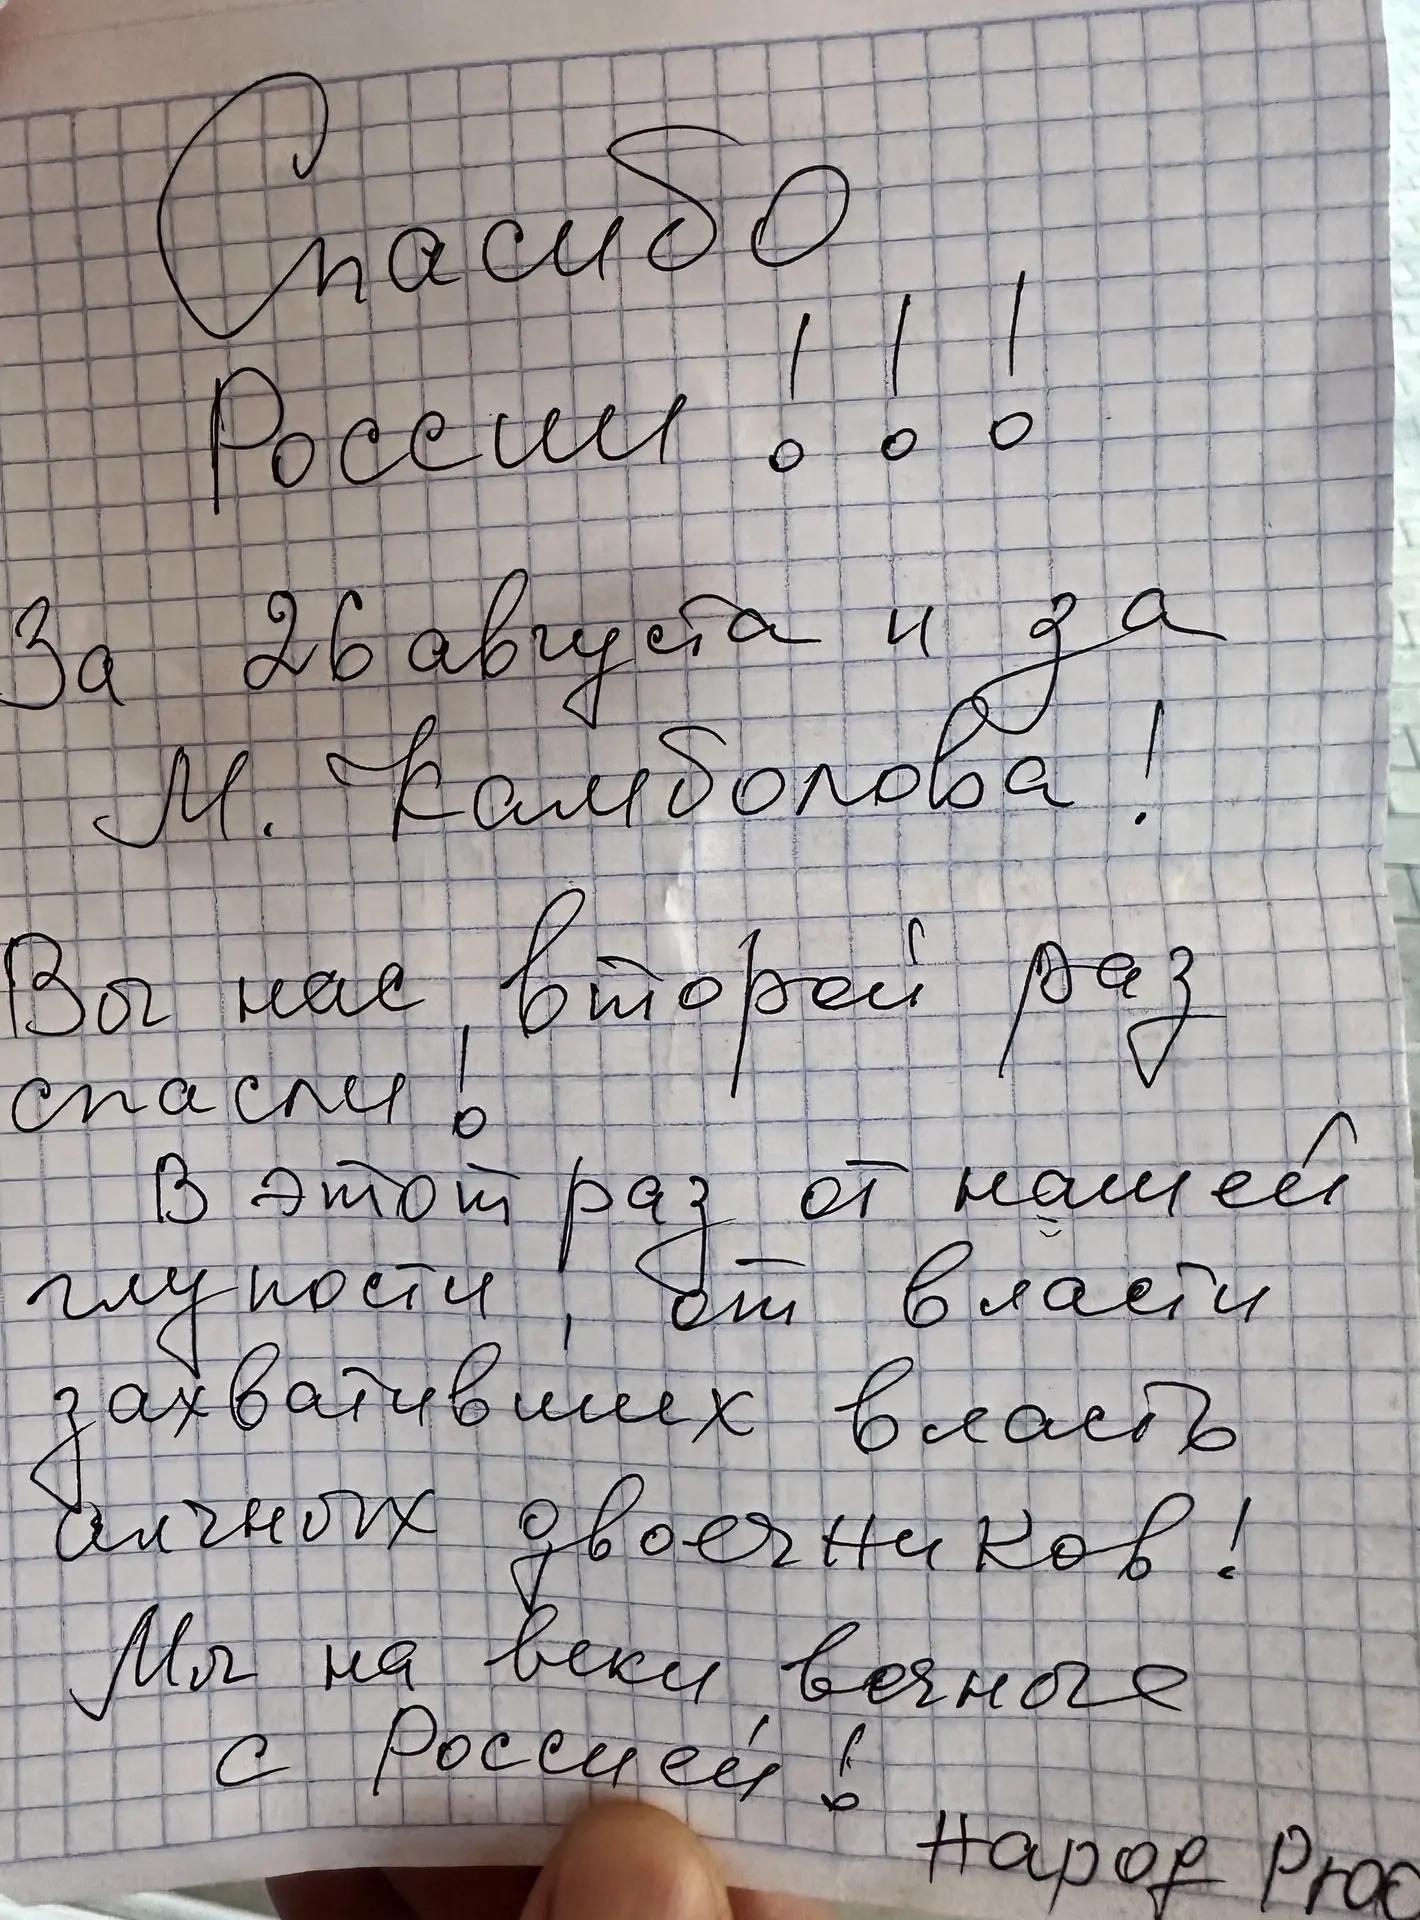 Спасибо
России!!!
За 26 августа и за
М. Камболова!
Вы нас, второй раз
спасли!
В этот раз от нашей
глупости, от власти
захвативших власть
алчных двоечников!
Мы на веки, вечные
с Россией!
Народ РЮО